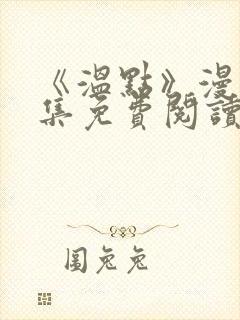 《溫點》漫
集免費閱讀
圖兔兔